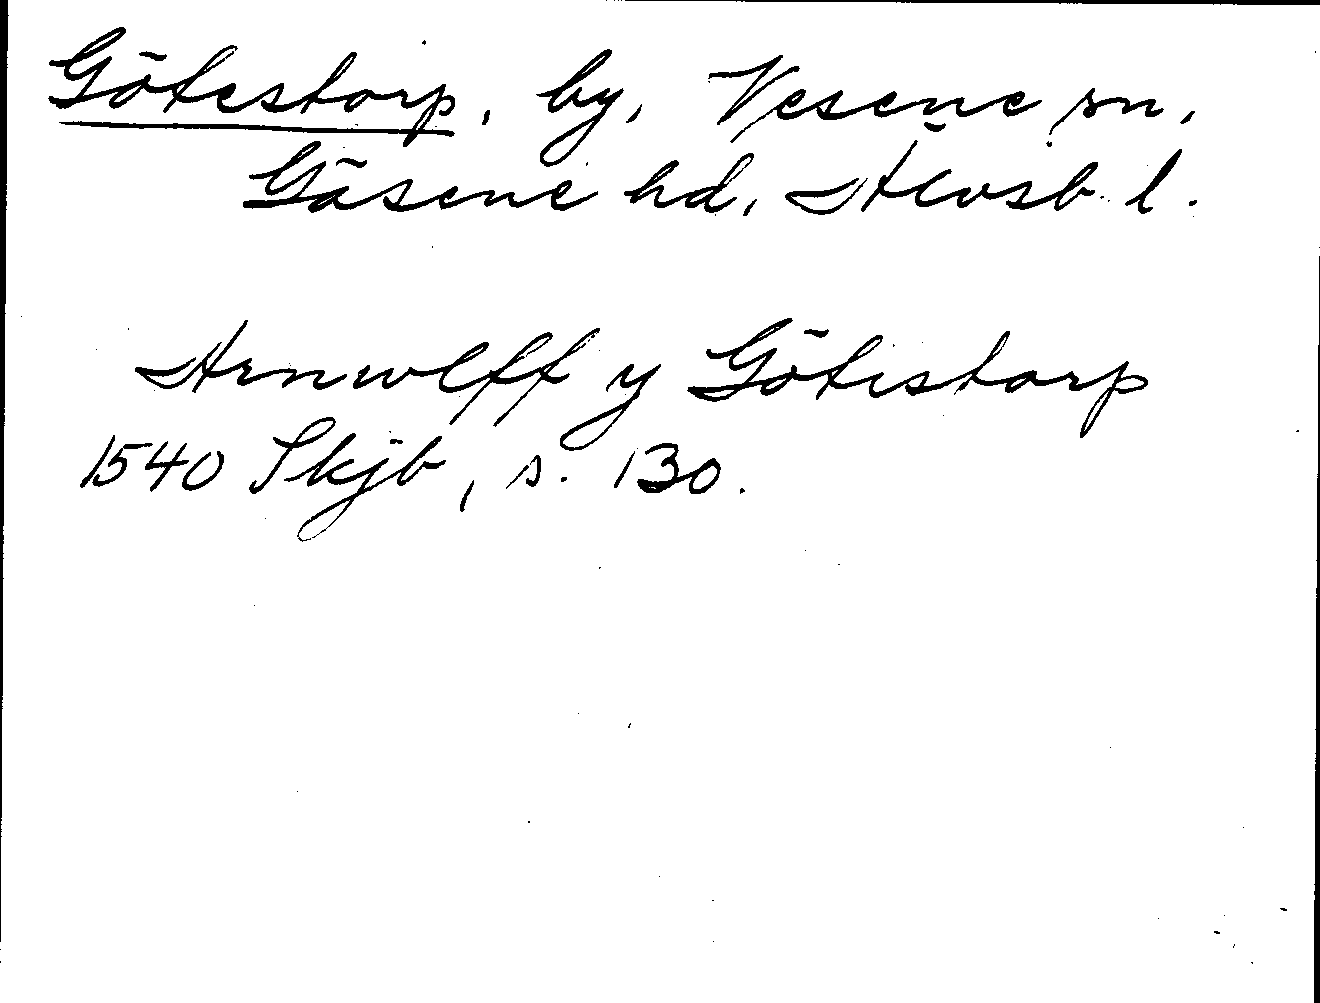 Götestorp, by, Vesene sn,
Gäsene hd, Älvsb. l.
Arnwlff y Götistorp
1540 Skjb, s. 130.